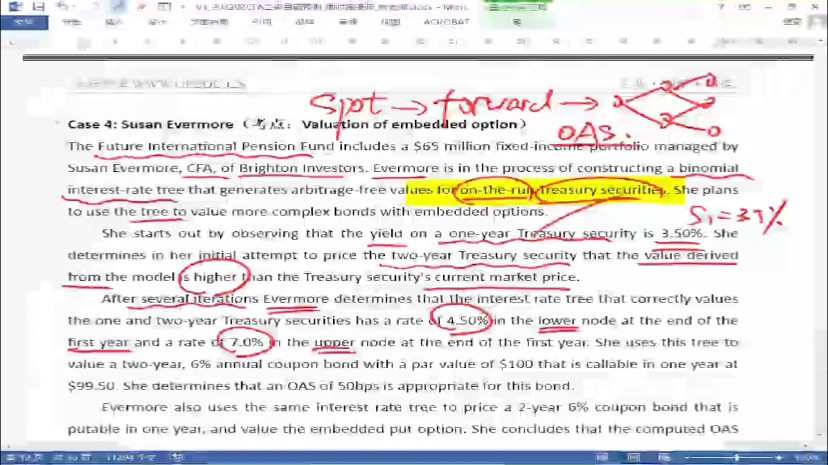 ACROBAT
Spot → forward →
OAS.
Case 4: Susan Evermore（考点：Valuation of embedded option）
The Future International Pension Fund includes a $65 million fixed-income portfolio managed by
Susan Evermore, CFA, of Brighton Investors. Evermore is in the process of constructing a binomial
interest-rate tree that generates arbitrage-free values for on-the-run Treasury securities. She plans
to use the tree to value more complex bonds with embedded options.
She starts out by observing that the yield on a one-year Treasury security is 3.50%. She
determines in her initial attempt to price the two-year Treasury security that the value derived
from the model is higher than the Treasury security's current market price.
After several iterations Evermore determines that the interest rate tree that correctly values
the one and two-year Treasury securities has a rate of 4.50% in the lower node at the end of the
first year and a rate of 7.0% in the upper node at the end of the first year. She uses this tree to
value a two-year, 6% annual coupon bond with a par value of $100 that is callable in one year at
$99.50. She determines that an OAS of 50bps is appropriate for this bond.
Evermore also uses the same interest rate tree to price a 2-year 6% coupon bond that is
putable in one year, and value the embedded put option. She concludes that the computed OAS